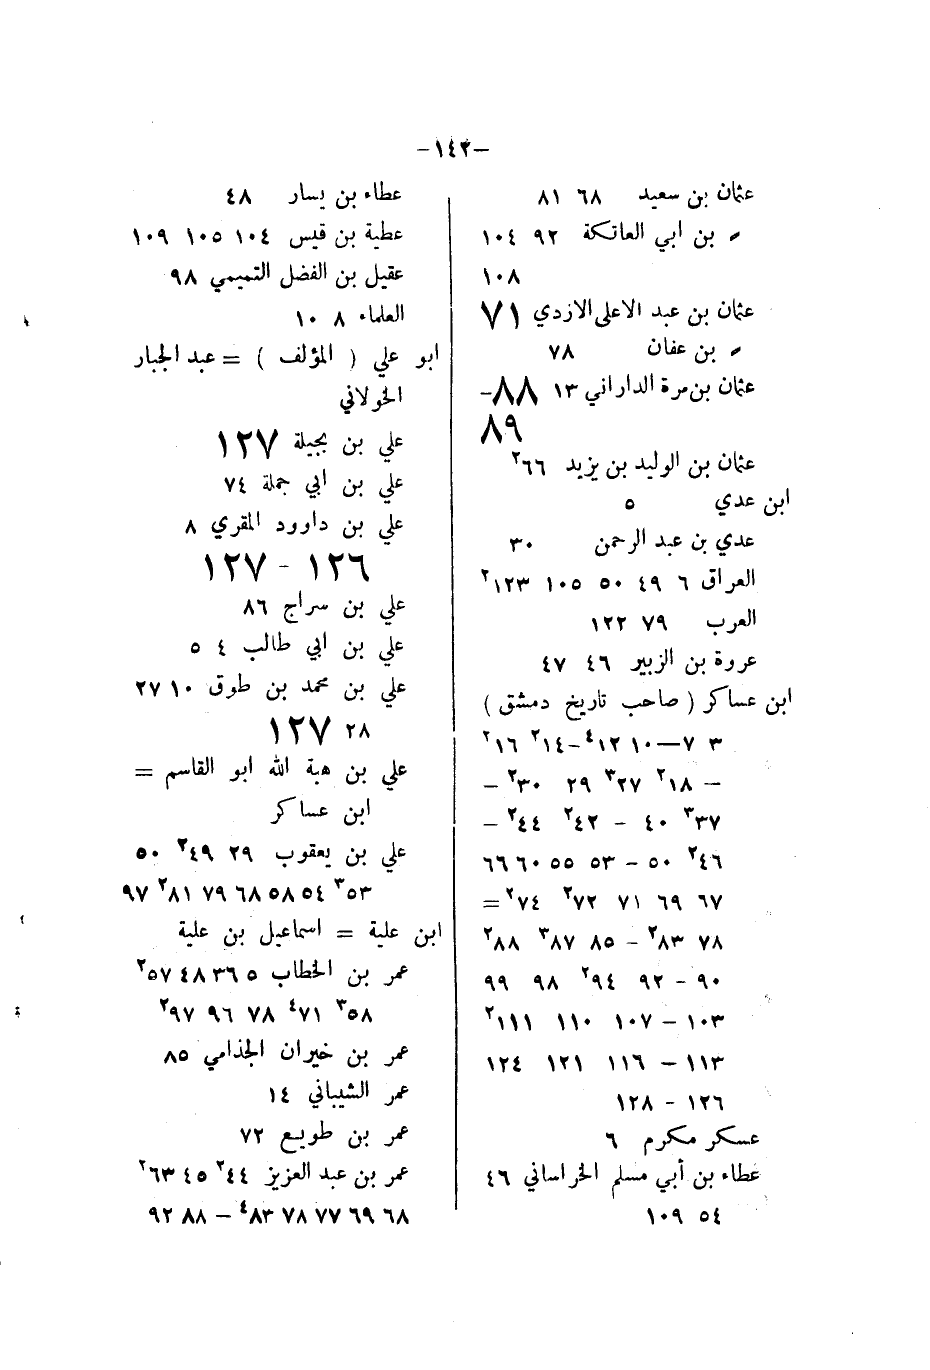 –١٤٣–
عثمان بن سعيد ٦٨ ٨١
ˮ بن ابي العاتكة ٩٢ ١٠٤
١٠٨
عثمان بن عبد الاعلى الازدي ٧١
ˮ بن عفان ٧٨
عثمان بن مرة الداراني ١٣ ٨٨-
٨٩
عثمان بن الوليد بن يزيد ٦٦²
ابن عدي ٥
عدي بن عبد الرحمن ٣٠
العراق ٦ ٤٩ ٥٠ ١٠٥ ١٢٣²
العرب ٧٩ ١٢٢
عروة بن الزبير ٤٦ ٤٧
ابن عساكر ( صاحب تاريخ دمشق )
٣ ٧—١٠ ١٢⁴-١٤² ١٦²
– ١٨² ٢٧³ ٢٩ ٣٠² –
٣٧³ ٤٠ – ٤٢² ٤٤² –
٤٦² ٥٠ – ٥٣ ٥٥ ٦٠ ٦٦
٦٧ ٦٩ ٧١ ٧٢² ٧٤² =
٧٨ ٨٣² – ٨٥ ٨٧³ ٨٨²
٩٠ – ٩٢ ٩٤² ٩٨ ٩٩
١٠٣ – ١٠٧ ١١٠ ١١١²
١١٣ – ١١٦ ١٢١ ١٢٤
١٢٦ – ١٢٨
عسكر مكرم ٦
عطاء بن أبي مسلم الخراساني ٤٦
٥٤ ١٠٩
عطاء بن يسار ٤٨
عطية بن قيس ١٠٤ ١٠٥ ١٠٩
عقيل بن الفضل التميمي ٩٨
العلماء ٨ ١٠
ابو علي ( المؤلف ) = عبد الجبار
الخولاني
علي بن بجيلة ١٢٧
علي بن ابي جملة ٧٤
علي بن داوود المقري ٨
١٢٦ - ١٢٧
علي بن سراج ٨٦
علي بن ابي طالب ٤ ٥
علي بن محمد بن طوق ١٠ ٢٧
٢٨ ١٢٧
علي بن هبة الله ابو القاسم =
ابن عساكر
علي بن يعقوب ٢٩ ٤٩² ٥٠
٥٣³ ٥٤ ٥٨ ٦٨ ٧٩ ٨١² ٩٧
ابن علية = اسماعيل بن علية
عمر بن الخطاب ٥ ٣٦ ٤٨ ٥٧²
٥٨³ ٧١⁴ ٧٨ ٩٦ ٩٧²
عمر بن خيران الجذامي ٨٥
عمر الشيباني ١٤
عمر بن طويع ٧٢
عمر بن عبد العزيز ٤٤² ٤٥ ٦٣²
٦٨ ٦٩ ٧٧ ٧٨ ٨٣⁴ – ٨٨ ٩٢